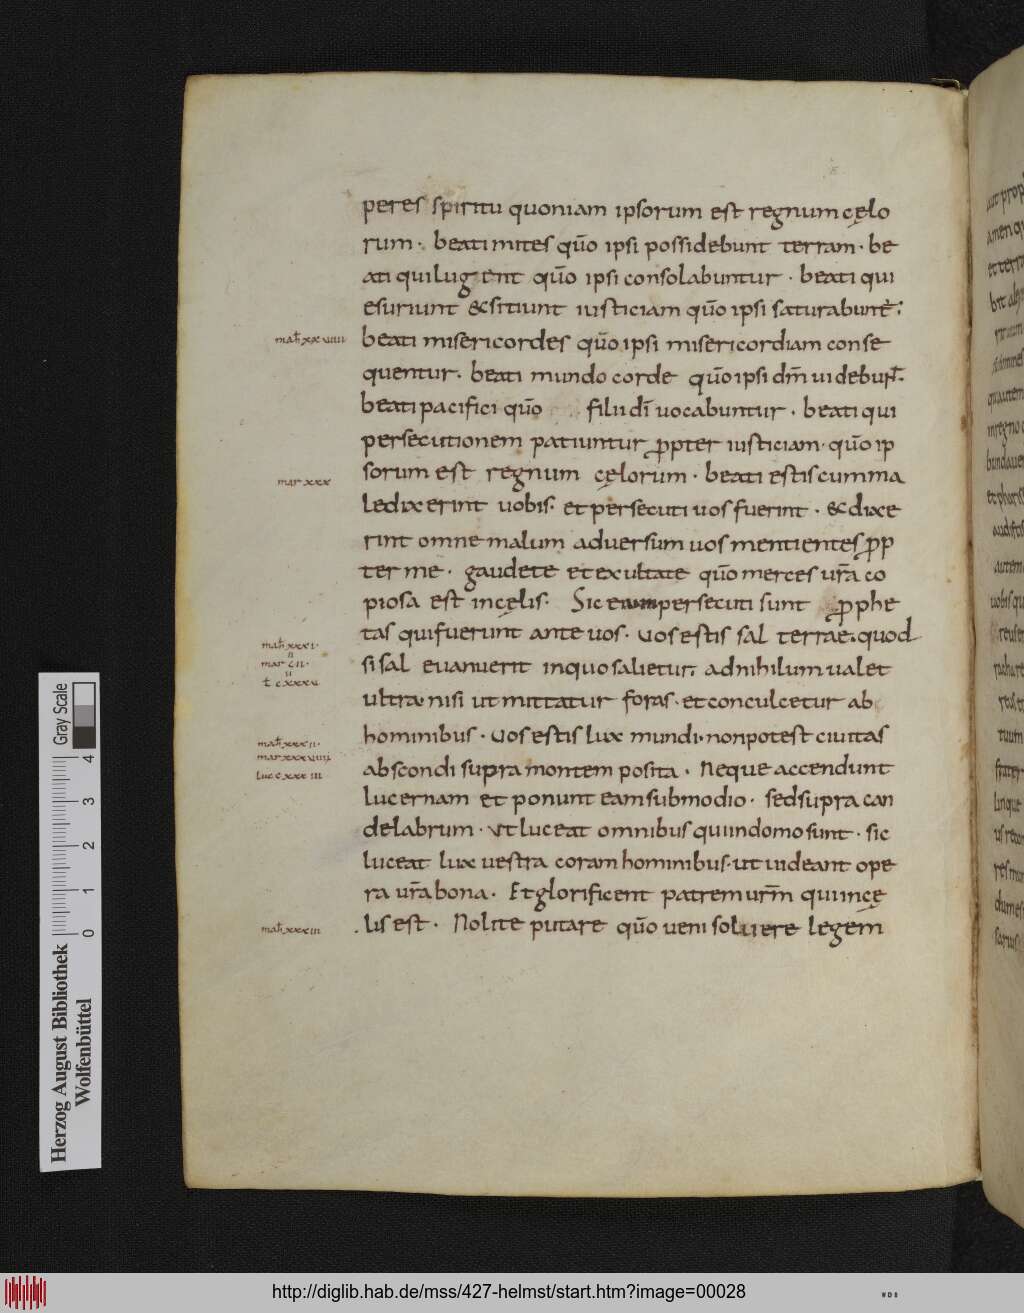 peres spiritu quoniam ipsorum est regnum cęlo
rum · beati mites quō ipsi possidebunt terram · be
ati qui lugent quō ipsi consolabuntur · beati qui
esuriunt &sitiunt iusticiam quō ipsi saturabunt;
math xxviiii
beati misericordes quō ipsi misericordiam conse
quentur · beati mundo corde quō ipsi dm̄ uidebunt̄ ·
beati pacifici quō filii dī uocabuntur · beati qui
persecutionem patiuntur ꝓpter iusticiam · quō ip
mar xxx
sorum est regnum cęlorum · beati estis cum ma
ledixerint uobis · et persecuti uos fuerint · &dixe
rint omne malum aduersum uos mentientes ꝓp
ter me · gaudete et exultate quō merces ur̄a co
piosa est in cęlis · Sic enim persecuti sunt ꝓphe
math xxxi ·
tas qui fuerunt ante uos · Uos estis sal terrae · quod
mar cii ·
si sal euanuerit in quo salietur; ad nihilum ualet
l cxxxv
ultra nisi ut mittatur foras · et conculcetur ab
math xxxii ·
hominibus · Uos estis lux mundi · non potest ciuitas
mar xxxviiii
luc cxxxiii
abscondi supra montem posita · Neque accendunt
lucernam et ponunt eam sub modio · sed supra can
delabrum · Ut luceat omnibus qui in domo sunt · sic
luceat lux uestra coram hominibus · ut uideant ope
ra ur̄a bona · Et glorificent patrem urm̄ qui in cę
math xxxiii
lis est · Nolite putare quō ueni soluere legem
Herzog August Bibliothek
Wolfenbüttel
Gray Scale
0 1 2 3 4
http://diglib.hab.de/mss/427-helmst/start.htm?image=00028